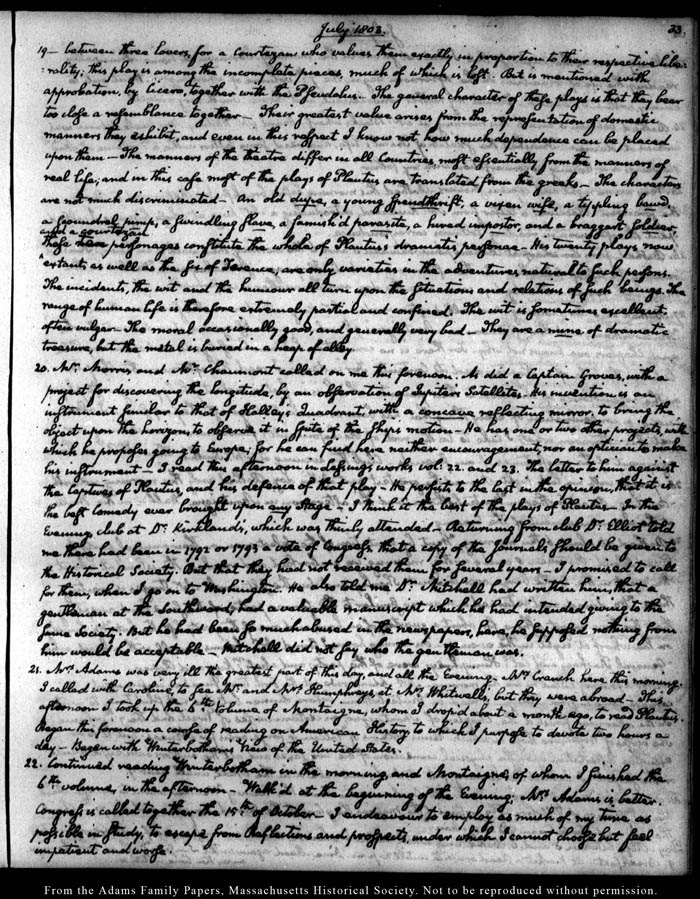 July 1803.
33.
19— between three lovers, for a Courtezan who values them exactly in proportion to their respective libe-
:rality; this play is among the incomplete pieces, much of which is lost. But is mentioned with
approbation, by Cicero, together with the Pseudolus— The general character of these plays is that they bear
too close a resemblance together— Their greatest value arises from the representation of domestic
manners they exhibit, and even in this respect I know not how much dependence can be placed
upon them— The manners of the theatre differ in all Countries most essentially from the manners of
real life; and in this case most of the plays of Plautus are translated from the greeks— The characters
are not much discriminated— An old dupe, a young spendthrift, a vixen wife, a tippling bawd,
a scoundrel pimp, a swindling slave, a famish'd parasite, a hired impostor, and a braggart soldier,
and a courtezan
these personages constitute the whole of Plautus's dramatis personae— His twenty plays now
extant, as well as the six of Terence, are only varieties in the adventures natural to such persons.
The incidents, the wit and the humour all turn upon the situations and relations of such beings. The
range of human life is therefore extremely partial and confined. The wit is sometimes excellent,
often vulgar— The moral occasionally good, and generally very bad— They are a mine of dramatic
treasure, but the metal is buried in a heap of alloy.
20. Mr: Morris and Mr: Chaumont called on me this forenoon. As did a Captain Groves, with a
project for discovering the longitude, by an observation of Jupiter's Satellites. His invention is an
instrument similar to that of Halley's Quadrant, with a concave reflecting mirror, to bring the
object upon the horizon, to observe it in spite of the ship's motion— He has one or two other projects, with
which he proposes going to Europe; for he can find here neither encouragement, nor an optician to make
his instrument— I read this afternoon in Lessing's works vol: 22. and 23. The letter to him against
the Captives of Plautus, and his defence of that play— He persists to the last in the opinion, that it is
the best Comedy ever brought upon any stage— I think it the best of the plays of Plautus— In the
Evening, club at Dr: Kirkland's, which was thinly attended— Returning from club Dr: Elliot told
me there had been in 1792 or 1793 a vote of Congress, that a copy of the Journals should be given to
the Historical Society. But that they had not received them for several years— I promised to call
for them, when I go on to Washington. He also told me Dr: Mitchell had written him, that a
gentleman at the Southward, had a valuable manuscript which he had intended giving to the
same Society. But he had been so much abused in the newspapers, here, he supposed nothing from
him would be acceptable— Mitchell did not say who the gentleman was.
21. Mrs: Adams was very ill the greatest part of this day, and all the Evening— Mrs: Cranch here this morning.
I called with Caroline, to see Mr: and Mrs: Humphreys, at Mr: Whitwell's, but they were abroad— This
afternoon I took up the 6th: volume of Montaigne, whom I drop'd about a month ago, to read Plautus.
Began this forenoon a course of reading on American History, to which I purpose to devote two hours a
day— Began with Winterbotham's View of the United States.
22. Continued reading Winterbotham in the morning, and Montaigne, of whom I finished the
6th: volume, in the afternoon— Walk'd at the beginning of the Evening. Mrs: Adams is better.
Congress is called together the 15th: of October— I endeavour to employ as much of my time as
possible in study, to escape from Reflections and prospects, under which I cannot choose but feel
impatient and worse.
From the Adams Family Papers, Massachusetts Historical Society. Not to be reproduced without permission.